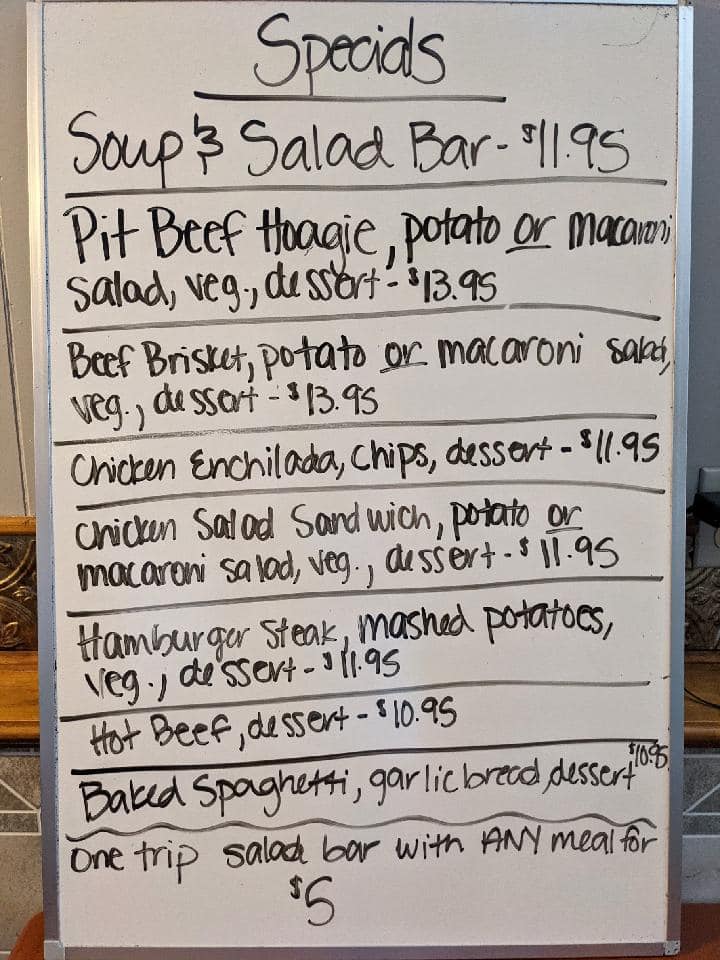 Specials
Soup & Salad Bar - $11.95
Pit Beef Hoagie, potato or macaroni
salad, veg., dessert - $13.95
Beef Brisket, potato or macaroni salad,
veg., dessert - $13.95
Chicken Enchilada, Chips, dessert - $11.95
Chicken Salad Sandwich, potato or
macaroni salad, veg., dessert - $11.95
Hamburger Steak, mashed potatoes,
veg., dessert - $11.95
Hot Beef, dessert - $10.95
Baked Spaghetti, garlic bread, dessert $10.95
One trip salad bar with ANY meal for
$5